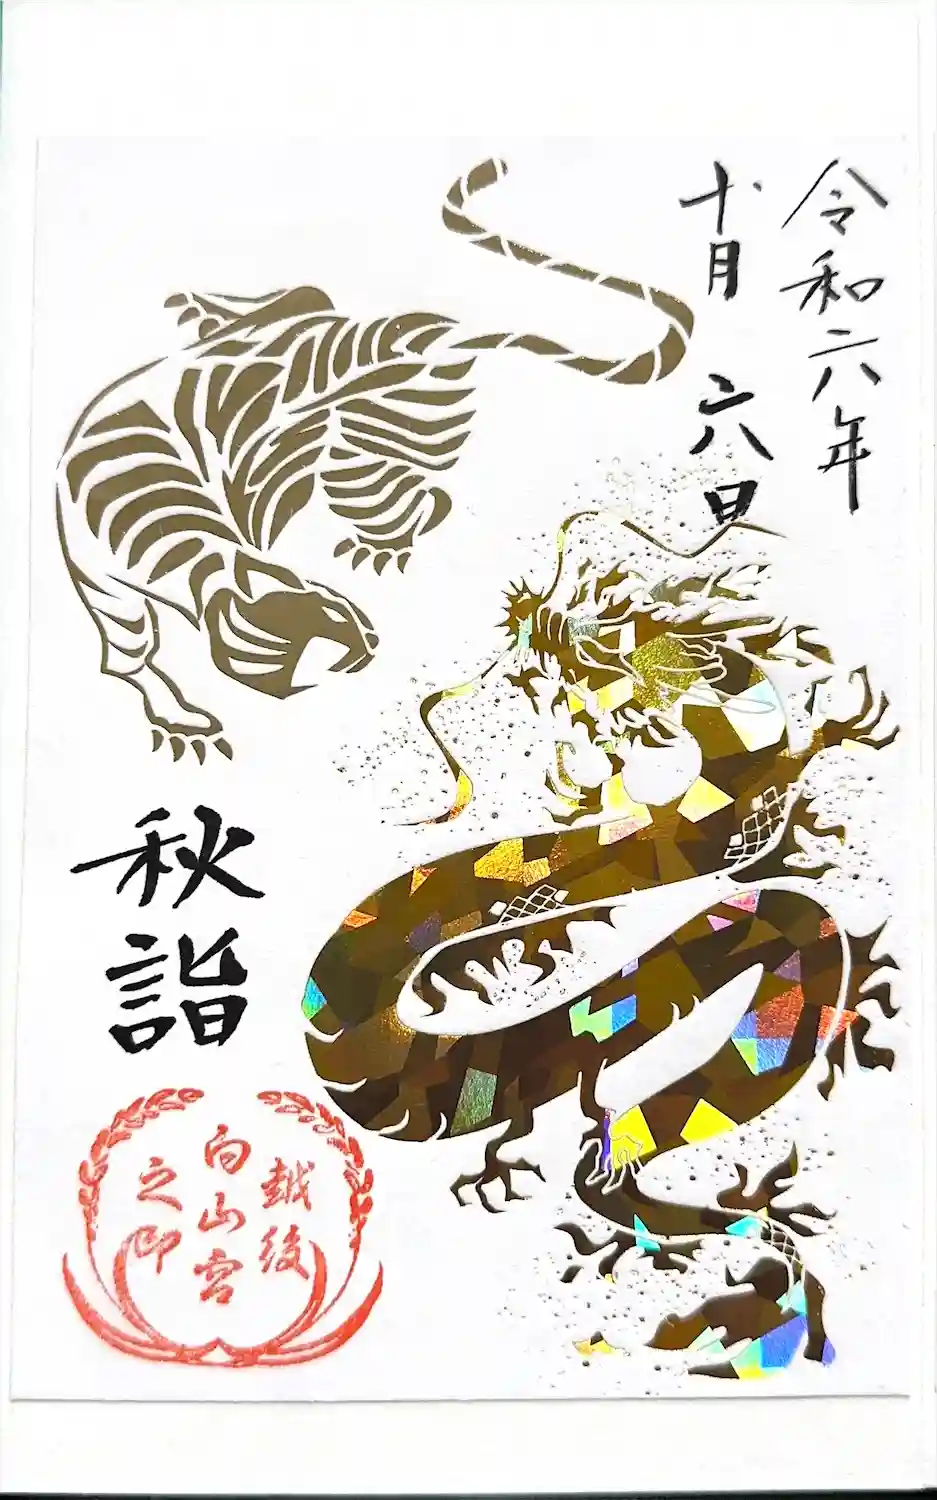 令和六年
十月六日
秋詣
越後
白山宮
之印